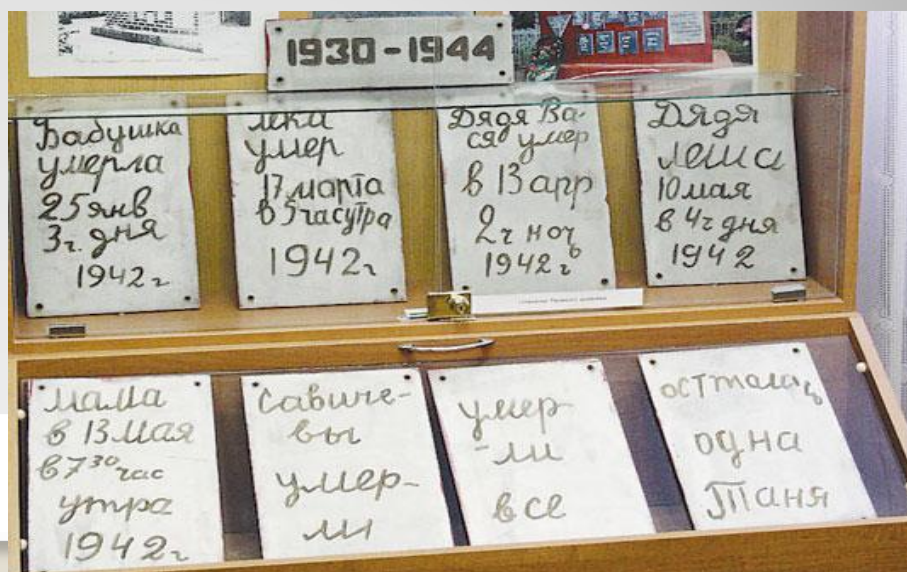 1930-1944
Бабушка
умерла
25 янв
3 ч. дня
1942 г
Лека
умер
17 марта
в 5 час утра
1942 г
Дядя Ва-
ся умер
в 13 апр
2 ч ночь
1942 г
Дядя
Леша
10 мая
в 4 ч дня
1942
мама
в 13 мая
в 7 30 час
утра
1942 г
Савиче-
вы
умер-
ли
умер-
-ли
все
осттались
одна
Таня